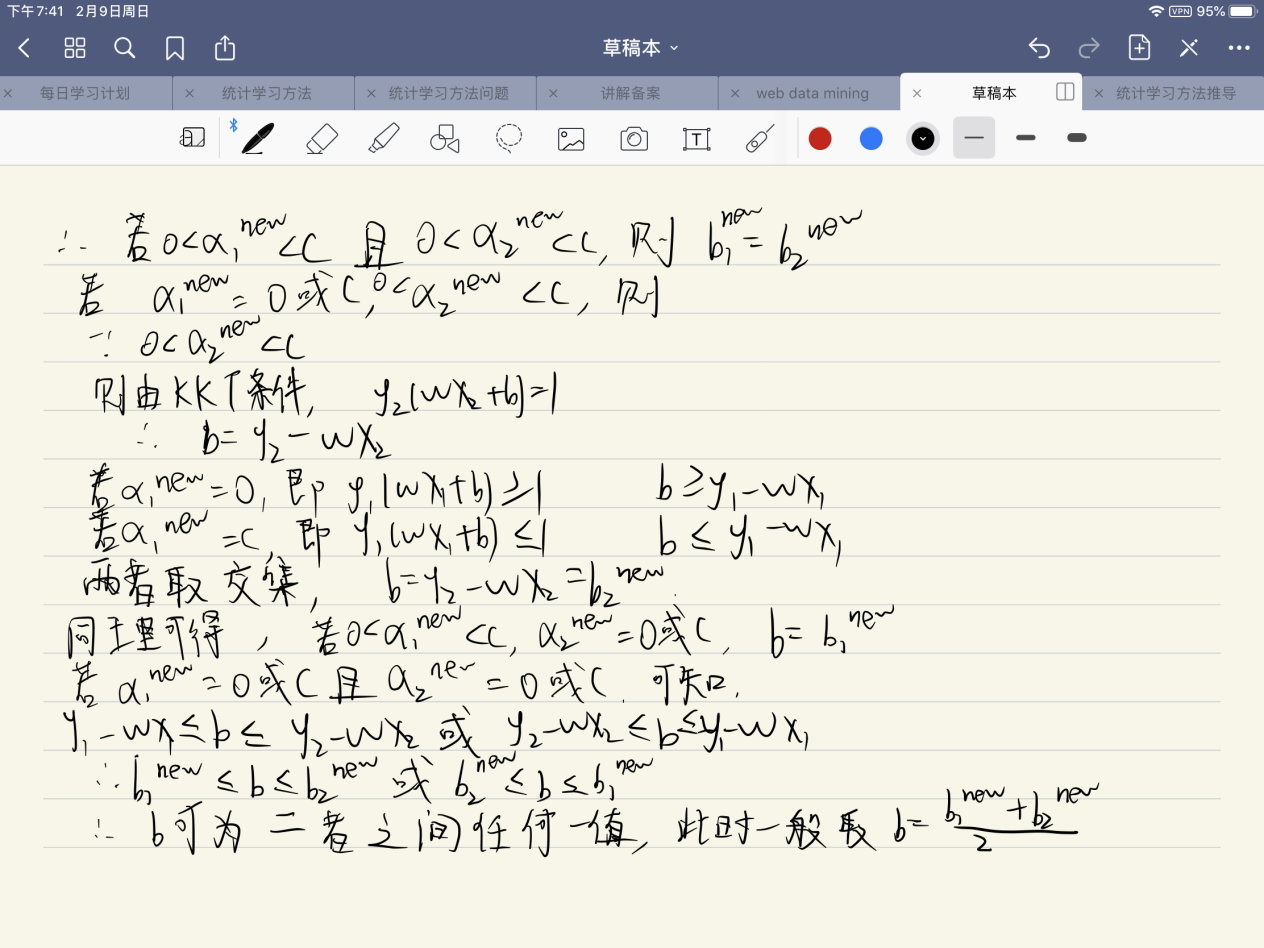 下午7:41 2月9日周日
VPN 95%
草稿本
每日学习计划
统计学习方法
统计学习方法问题
讲解备案
web data mining
草稿本
统计学习方法推导
∴ 若 0<α₁^new<C 且 0<α₂^new<C, 则 b₁^new = b₂^new
若 α₁^new = 0 或 C, 0<α₂^new <C, 则
∵ 0<α₂^new <C
则由KKT条件, y₂(wx₂+b)=1
∴ b= y₂ - wx₂
若α₁^new =0, 即 y₁(wx₁+b)≥1 b≥y₁-wx₁
若α₁^new =C, 即 y₁(wx₁+b)≤1 b≤y₁-wx₁
两者取交集, b=y₂-wx₂=b₂^new.
同理可得, 若0<α₁^new<C, α₂^new=0或C, b= b₁^new
若 α₁^new =0或C且α₂^new = 0 或C. 可知.
y₁-wx₁≤b≤ y₂-wx₂ 或 y₂-wx₂≤b≤y₁-wx₁
∴b₁^new ≤b≤b₂^new 或 b₂^new≤b≤b₁^new
∴ b可为二者之间任何一值, 此时一般取 b= (b₁^new+b₂^new)/2